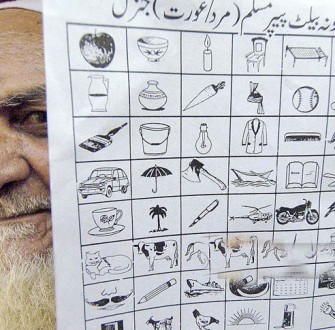 نہ بیلٹ پیپر مسلم (مرد/عورت) جنرل